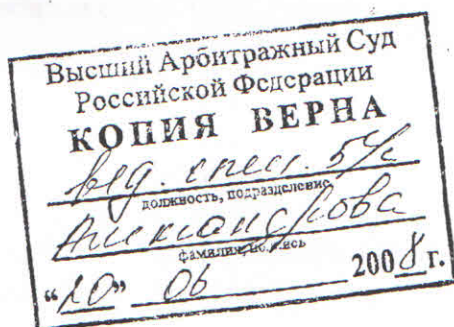 Высший Арбитражный Суд
Российской Федерации
КОПИЯ ВЕРНА
вед. спец. 5/с
должность, подразделение
Александрова
фамилия, подпись
“20” 06 2008 г.